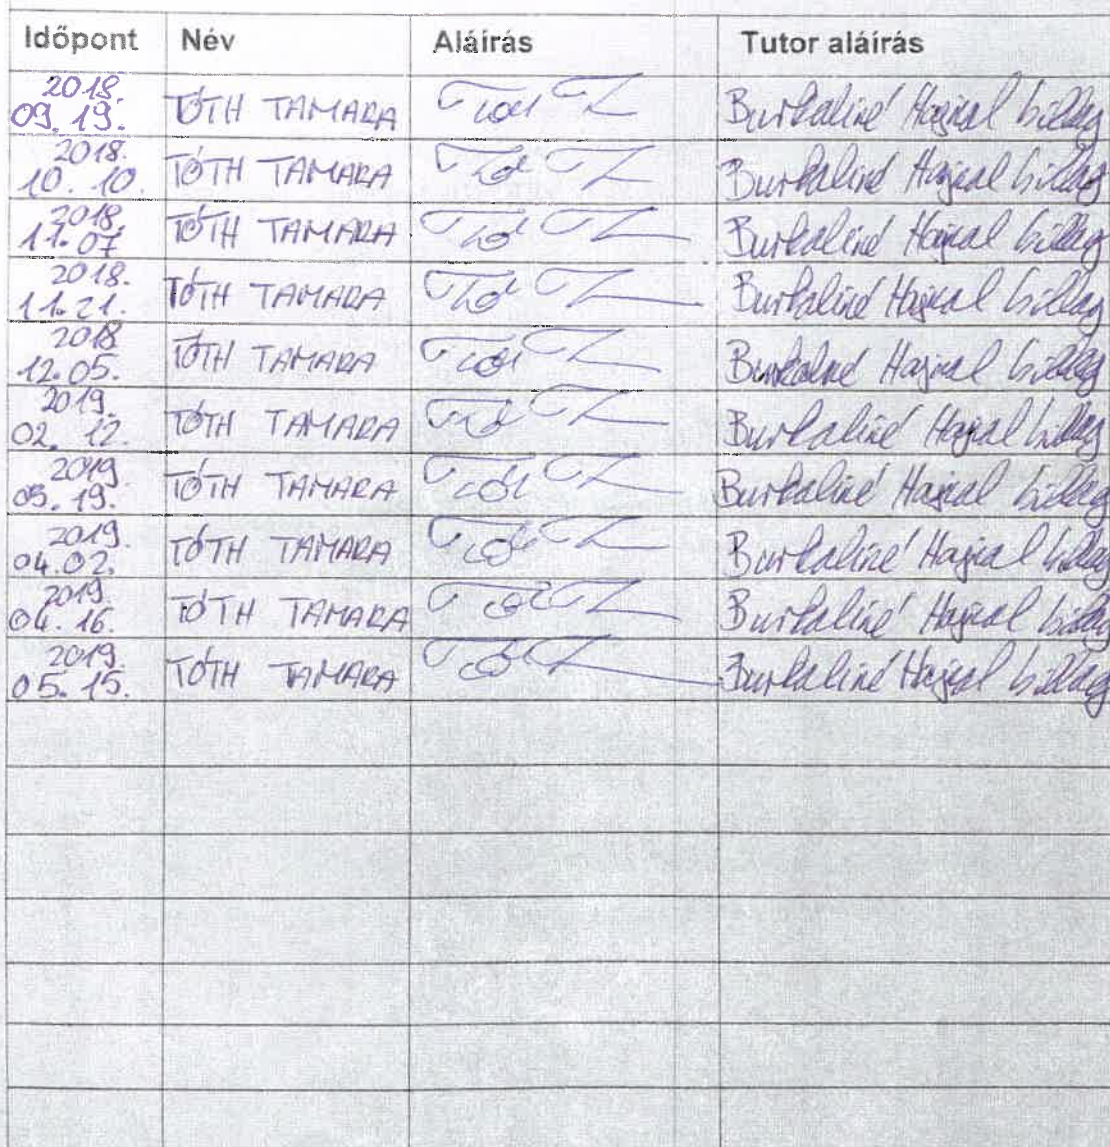 Időpont Név Aláírás Tutor aláírás
2018.
09. 19. TÓTH TAMARA Burkaliné Hajnal Csillag
2018.
10. 10. TÓTH TAMARA Burkaliné Hajnal Csillag
2018
11. 07 TÓTH TAMARA Burkaliné Hajnal Csillag
2018.
11. 21. TÓTH TAMARA Burkaliné Hajnal Csillag
2018
12. 05. TÓTH TAMARA Burkaliné Hajnal Csillag
2019.
02. 12. TÓTH TAMARA Burkaliné Hajnal Csillag
2019
03. 19. TÓTH TAMARA Burkaliné Hajnal Csillag
2019.
04. 02. TÓTH TAMARA Burkaliné Hajnal Csillag
2019.
04. 16. TÓTH TAMARA Burkaliné Hajnal Csillag
2019.
05. 15. TÓTH TAMARA Burkaliné Hajnal Csillag